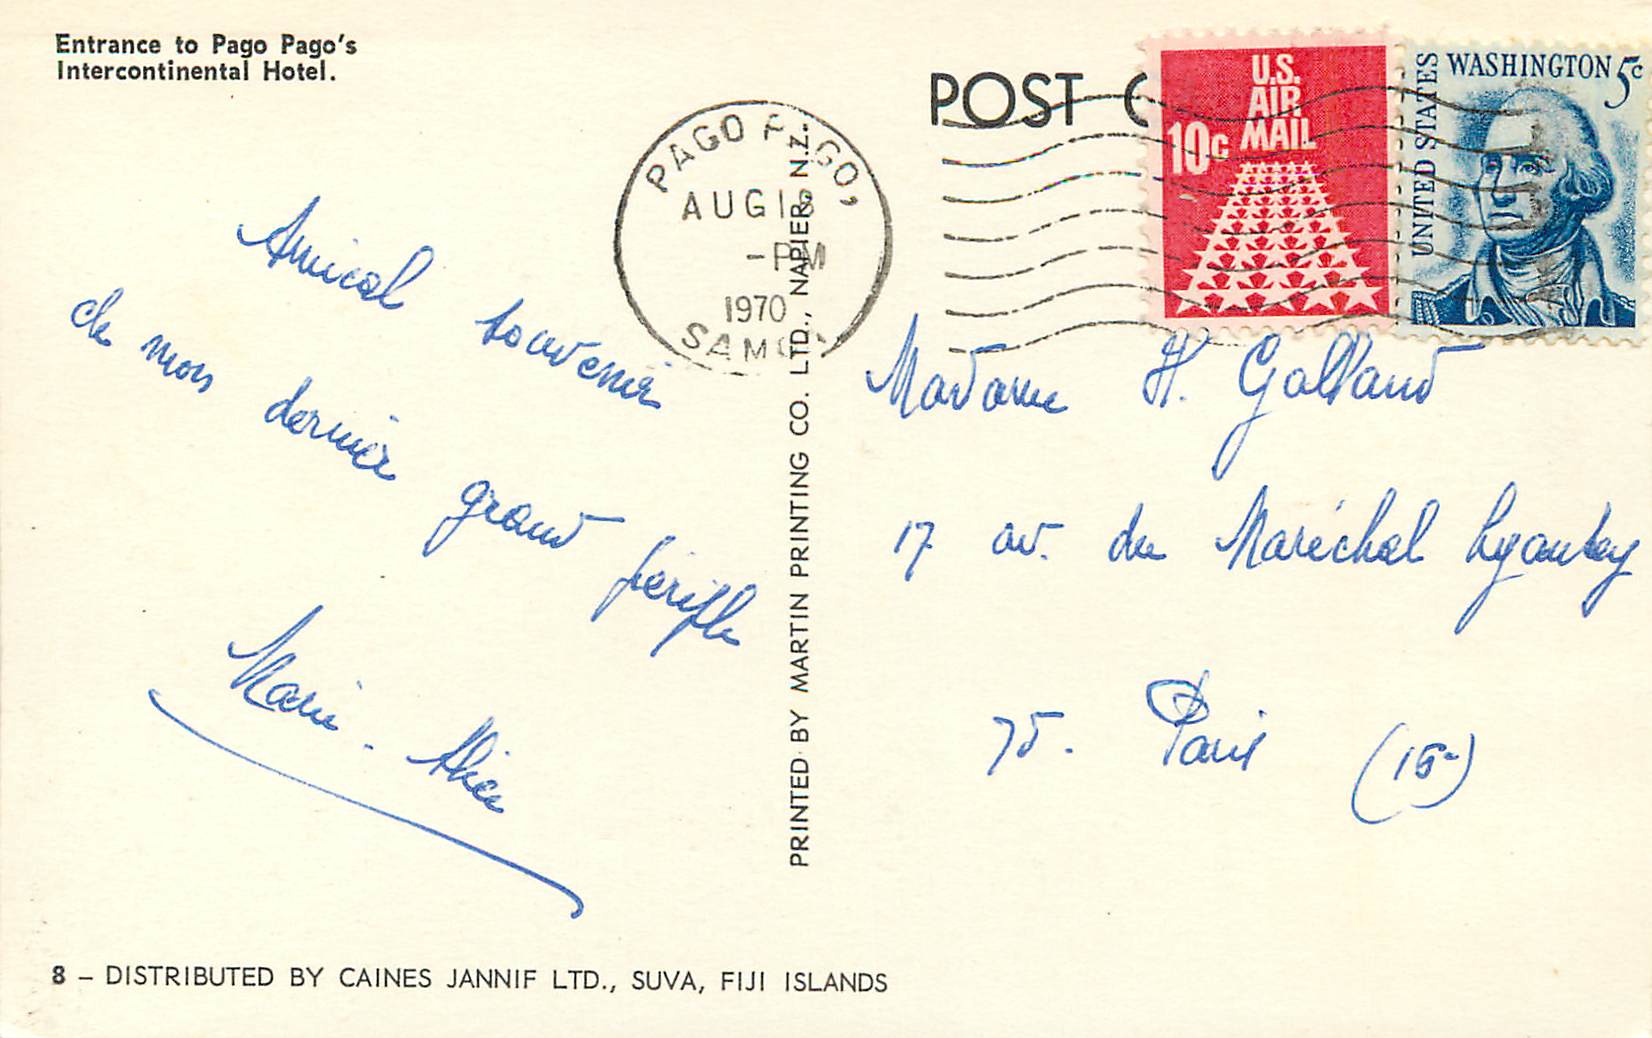 Entrance to Pago Pago's
Intercontinental Hotel.
POST C
PAGO PAGO,
AUG 18
-PM
1970
SAMOA
U.S.
AIR
MAIL
10c
UNITED STATES
WASHINGTON 5c
Amical souvenir
de mon dernier grand périple
Marie-Alice
PRINTED BY MARTIN PRINTING CO. LTD., NAPIER, N.Z.
Madame H. Galland
17 av. du Maréchal Lyautey
75. Paris (16e)
8 – DISTRIBUTED BY CAINES JANNIF LTD., SUVA, FIJI ISLANDS